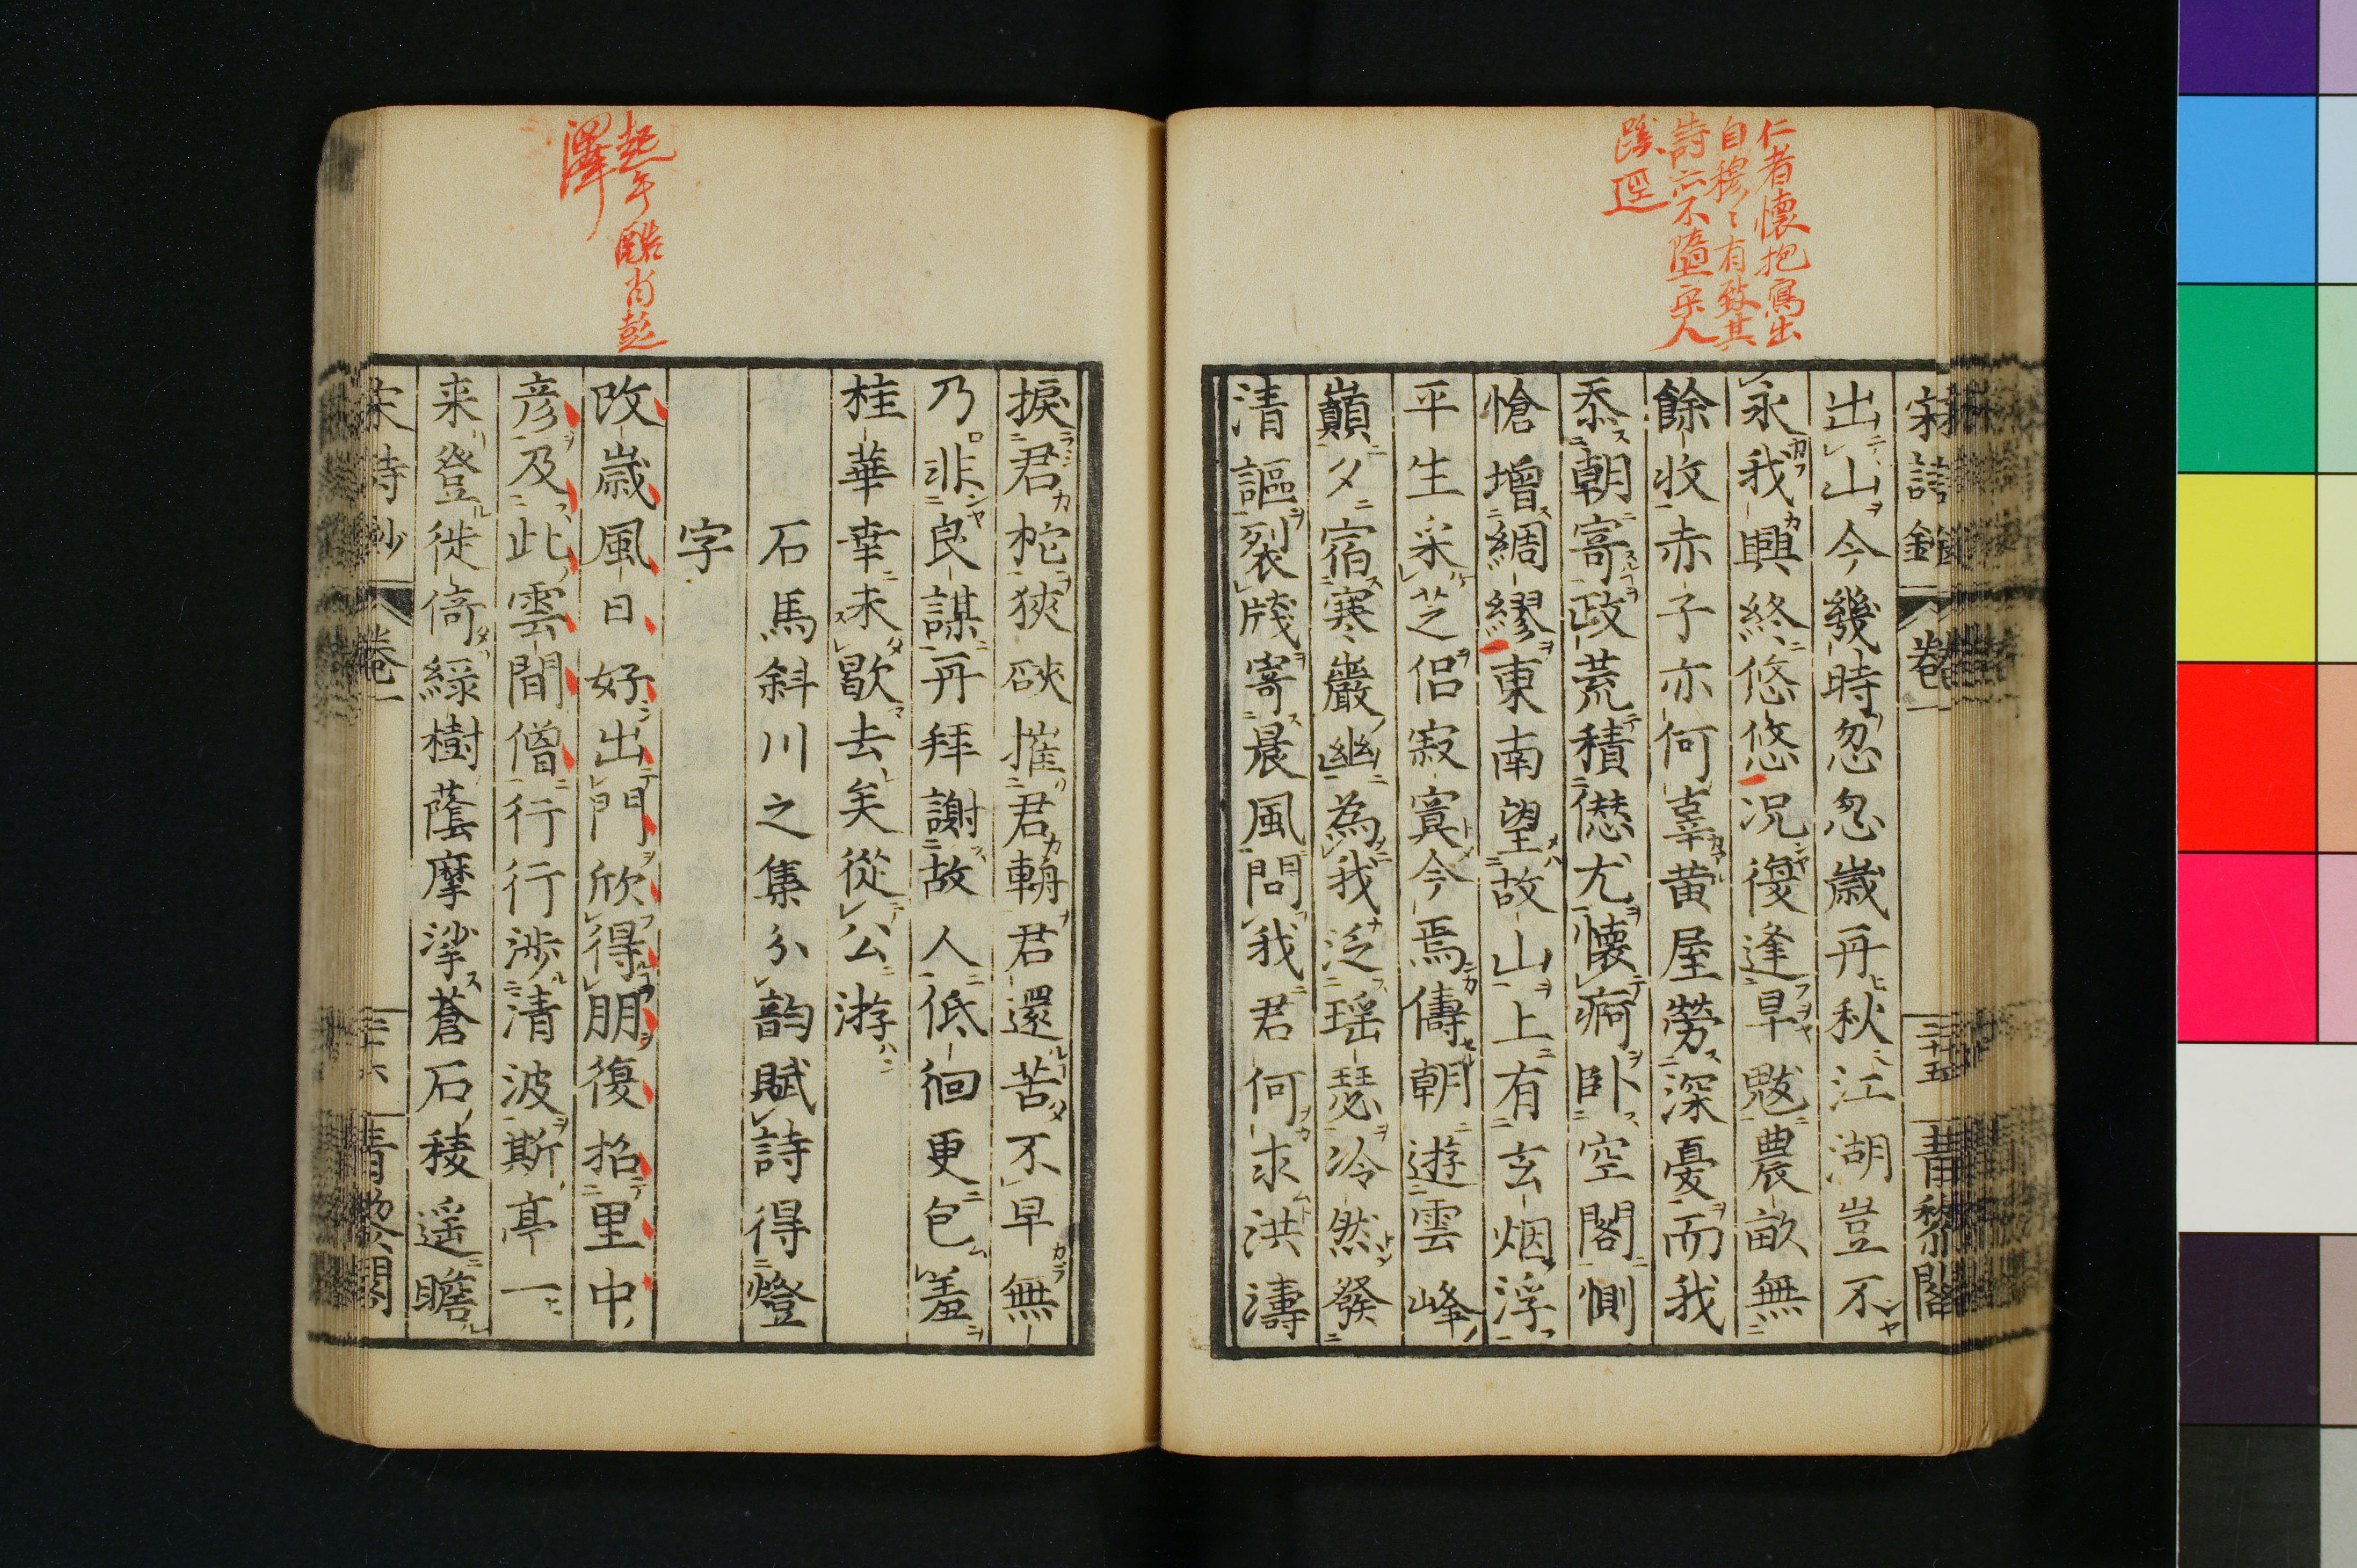 仁者懷抱寫出
自穆〻有致其
詩亦不墮宋人
蹊逕
宋詩鈔 卷一 三十五 青藜閣
出山今幾時忽忽歲再秋江湖豈不
永我興終悠悠況復逢旱魃農畝無
餘收赤子亦何辜黃屋勞深憂而我
忝朝寄政荒積愆尤懷痾臥空閣惻
愴增綢繆東南望故山上有玄烟浮
平生采芝侶寂寞今焉儔朝遊雲峰
巔夕宿寒巖幽為我泛瑶瑟冷然發
清謳裂牋寄晨風問我君何求洪濤
捩君柁狹硤摧君輈君還苦不早無
乃非良謀再拜謝故人低徊更包羞
桂華幸未歇去矣從公游
石馬斜川之集分韵賦詩得燈
字
改歲風日好出門欣得朋復招里中
彦及此雲間僧行行涉清波斯亭一
来登徙倚綠樹蔭摩挲蒼石稜遥瞻
宋詩鈔 卷一 三十六 青藜閣
澤